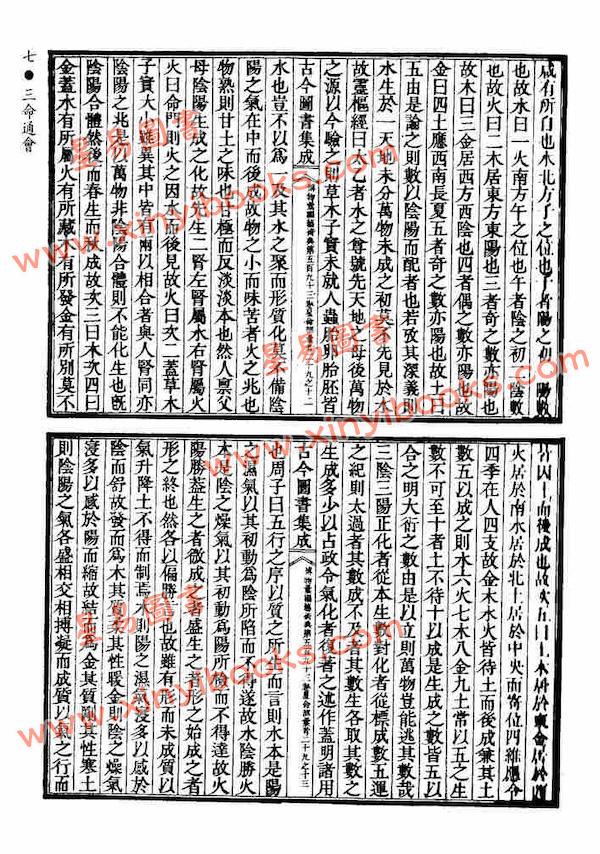 七 ● 三命通會
咸有所自也水北方子之位也子者陽之初一陽數
也故水曰一火南方午之位也午者陰之初二陰數
也故火曰二木居東方東陽也三者奇之數亦陽也
故木曰三金居西方西陰也四者偶之數亦陽也故
金曰四土應西南長夏五者奇之數亦陽也故土曰
五由是論之則數以陰陽而配者也若致其深義則
水生於一天地未分萬物未成之初莫不先見於水
故靈樞經曰太乙者水之尊號先天地之母後萬物
之源以今驗之則草木子實未就人蟲胎卵胎胚皆
古今圖書集成
博物彙編藝術典第五百九十三卷星命部彙考二十九之十二
水也豈不以爲一及其水之聚而形質化莫不備陰
陽之氣在中而後成故物之小而味苦者火之兆也
物熟則甘土之味也甘極而反淡淡本也然人稟父
母陰陽生成之化故先生二腎左腎屬水右腎屬火
火曰命門則火之因水而後見故火曰次二蓋草木
子實大小雖異其中皆有兩以相合者與人腎同亦
陰陽之兆是以萬物非陰陽合體則不能化生也既
陰陽合體然後而春生而秋成故次三曰木次四曰
金蓋水有所屬火有所藏木有所發金有所別莫不
皆因土而後成也故次五曰土木居於東金居於西
火居於南水居於北土居於中央而寄位四維應令
四季在人四支故金木水火皆待土而後成兼其土
數五以成之則水六火七木八金九土常以五之生
數不可至十者土不待十以成是生成之數皆五以
合之明大衍之數由是以立則萬物豈能逃其數哉
三陰三陽正化者從本生數對化者從標成數五運
之紀則太過者其數成不及者其數生各取其數之
生成多少以占政令氣化者從著之述作蓋明諸用
古今圖書集成
博物彙編藝術典第五百九十三卷星命部彙考二十九之十三
也周子曰五行之序以質之所生而言則水本是陽
之濕氣以其初動爲陰所陷而不得遂故水陰勝火
本是陰之燥氣以其初動爲陽所揜而不得達故火
陽勝蓋生之者微成之者盛生之者形之始成之者
形之終也然各以偏勝也故雖有形而未成質以
氣升降土不得而制焉木則陽之濕氣浸多以感於
陰而舒故發而爲木其質柔其性暖金則陰之燥氣
浸多以感於陽而縮故結而爲金其質剛其性寒土
則陰陽之氣各盛相交相搏凝而成質以氣之行而
星易圖書
www.xinyibooks.com
星易圖書
www.xinyibooks.com
星易圖書
www.xinyibooks.com
星易圖書
www.xinyibooks.com